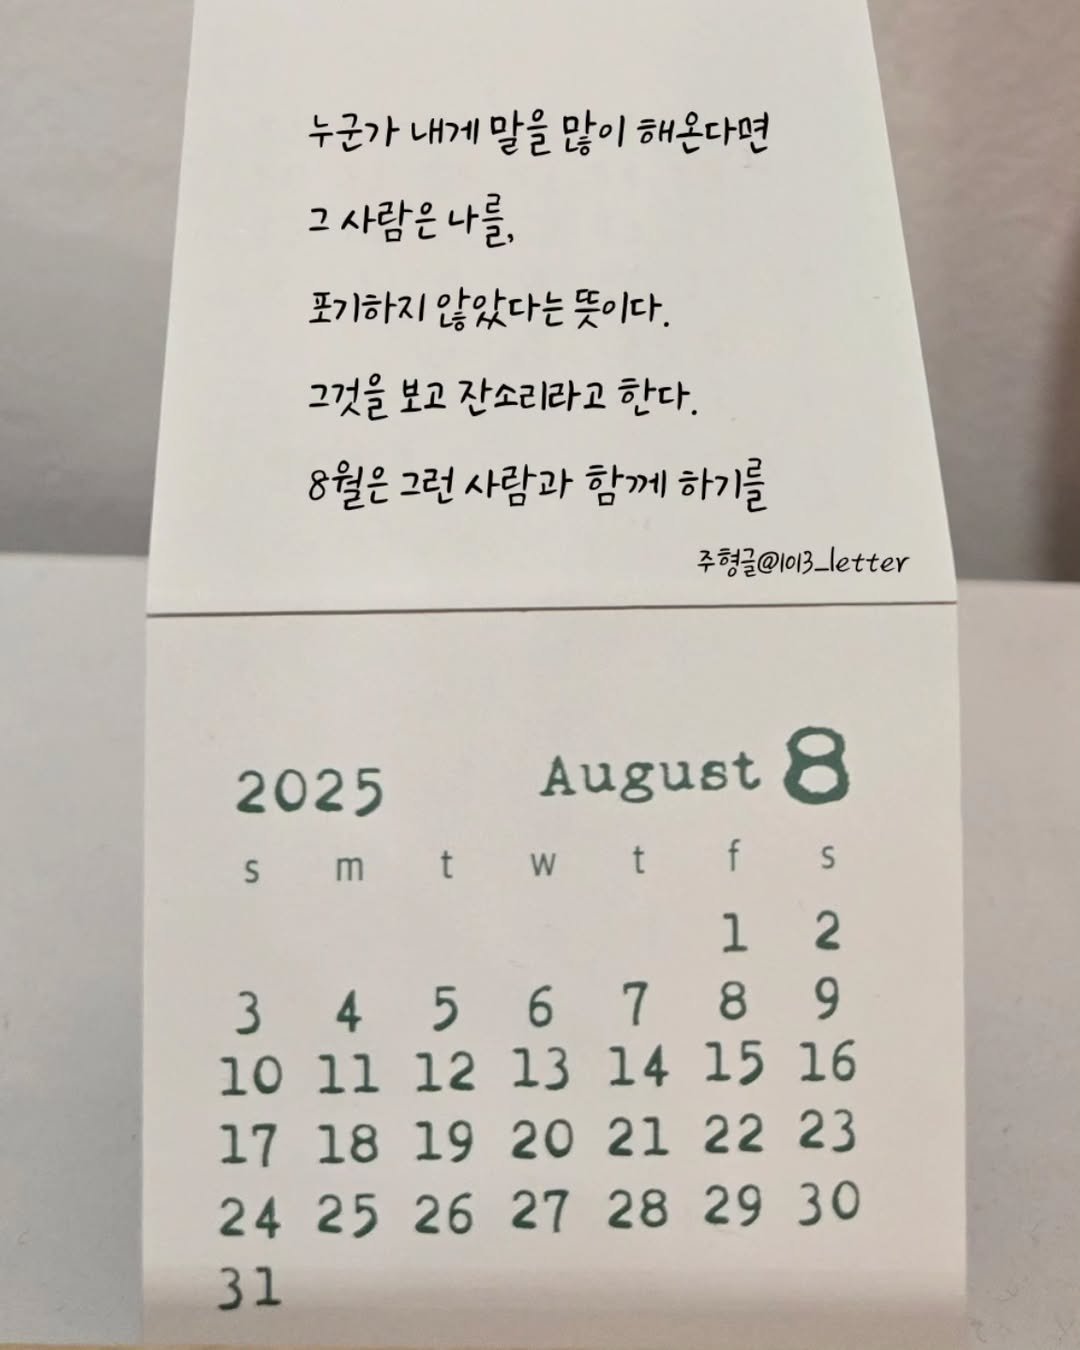 누군가 내게 말을 많이 해온다면
그 사람은 나를,
포기하지 않았다는 뜻이다.
그것을 보고 잔소리라고 한다.
8월은 그런 사람과 함께 하기를
주형글@1013_letter
2025 August 8
s m t w t f s
1 2
3 4 5 6 7 8 9
10 11 12 13 14 15 16
17 18 19 20 21 22 23
24 25 26 27 28 29 30
31